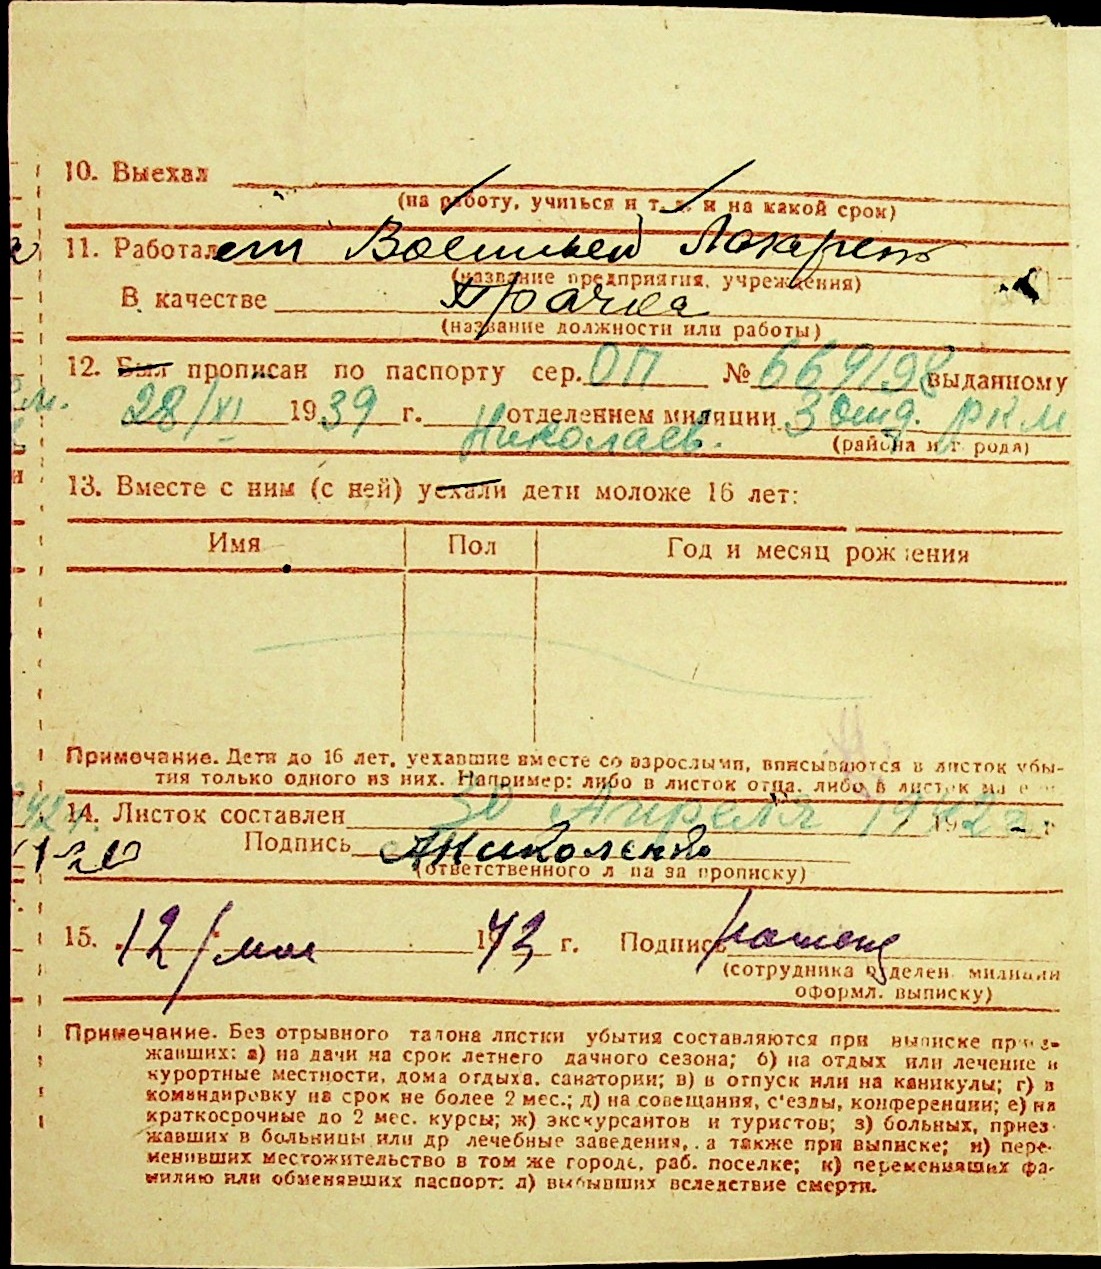 10. Выехал
(на работу, учиться и т. д. и на какой срок)
11. Работает Военный Лазарет
(название предприятия, учреждения)
В качестве Прачка
(название должности или работы)
12. Был прописан по паспорту сер. ОП № 669198 выданному
28/XI 1939 г. Николаев. отделением милиции 3 отд. РКМ
(района и города)
13. Вместе с ним (с ней) уехали дети моложе 16 лет:
Имя Пол Год и месяц рождения
Примечание. Дети до 16 лет, уехавшие вместе со взрослыми, вписываются в листок убы-
тия только одного из них. Например: либо в листок отца, либо в листок
14. Листок составлен 30 Апреля 1942 г
Подпись
(ответственного лица за прописку)
15. 12/мая 1943 г. Подпись
(сотрудника отделен. милиции
оформл. выписку)
Примечание. Без отрывного талона листки убытия составляются при выписке приез-
жавших: а) на дачи на срок летнего дачного сезона; б) на отдых или лечение в
курортные местности, дома отдыха, санатории; в) в отпуск или на каникулы; г) в
командировку на срок не более 2 мес.; д) на совещания, с'езды, конференции; е) на
краткосрочные до 2 мес. курсы; ж) экскурсантов и туристов; з) больных, приез-
жавших в больницы или др лечебные заведения, а также при выписке; и) пере-
менивших местожительство в том же городе, раб. поселке; к) переменивших фа-
милию или обменявших паспорт; л) выбывших вследствие смерти.